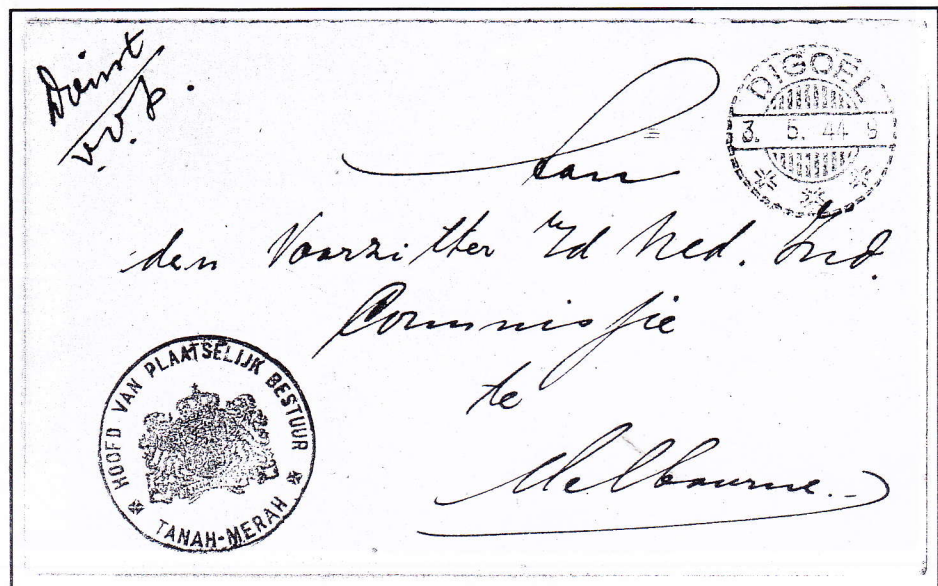 Dienst
v.o.p.
DIGOEL
3. 5. 44 9
Aan
den Voorzitter v/d Ned. Ind.
Commissie
te
Melbourne.
HOOFD VAN PLAATSELIJK BESTUUR
TANAH-MERAH